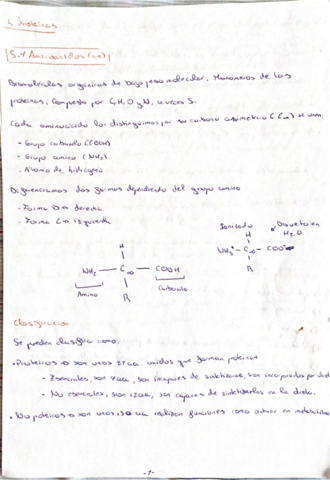 5. Proteínas
5.1 Aminoácidos (aa)
Biomoléculas orgánicas de bajo peso molecular. Monómeros de las
proteínas, compuesto por C, H, O y N, a veces S.
Cada aminoácido los distinguimos por su carbono asimétrico (C∞) se unen:
- Grupo carboxilo (COOH)
- Grupo amino (NH2)
- Átomo de hidrógeno
Diferenciamos dos formas dependiendo del grupo amino
- Forma D → derecha
- Forma L → izquierda
Ionizado
Disuelto en
H2O
H
NH3+ — C∞ — COO-
R
H
NH2 — C∞ — COOH
R
Amino
Carboxilo
Clasificación
Se pueden clasificar como:
• Proteicos → son unos aa unidos que forman proteínas
- Esenciales, son aa, son incapaces de sintetizarse, son incorporados por
- No esenciales, son 12aa, son capaces de sintetizarlos en la dieta.
• No proteicos → son unos 150 aa realizan funciones como actuar en
-1-